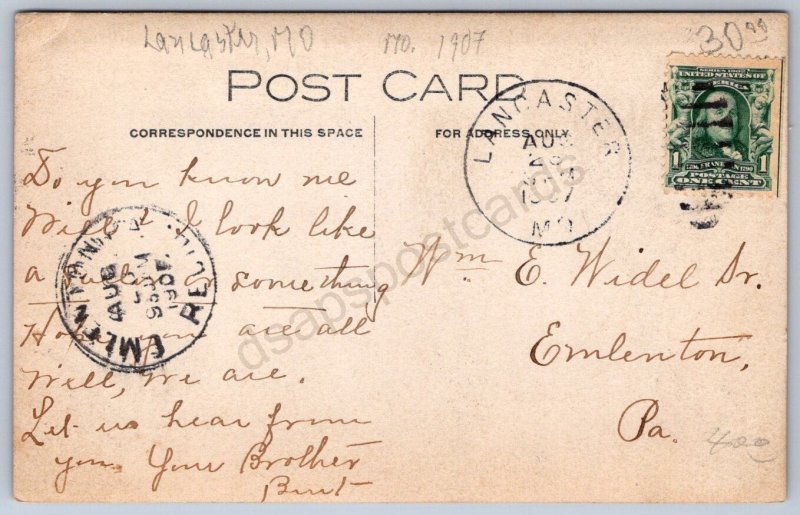 Lancaster, MO
Mo. 1907
30
POST CARD
CORRESPONDENCE IN THIS SPACE
FOR ADDRESS ONLY
LANCASTER
AUG
1907
MO.
SERIES 1902
UNITED STATES OF AMERICA
1706 FRANKLIN 1790
1 POSTAGE 1
ONE CENT
Do you know me
Will? I look like
a something
Hope you are all
well, we are.
Let us hear from
you. Your Brother
Burt
EMLENTON, PA.
AUG
1907
REC'D.
Wm E. Widel Sr.
Emlenton,
Pa.
400
dsapspostcards